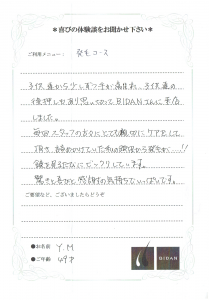 *喜びの体験談をお聞かせ下さい*
ご利用メニュー： 発毛コース
子供達から少しずつ毛が薄くなり、子供達の
後押しもあり思い切ってBIDANさんに来店
しました。
毎回スタッフの方々にとても親切にケアをして
頂き、諦めかけていた私の頭頂から発毛が!!
鏡を見るたびにビックリしています。
驚きと喜びと感謝の気持ちでいっぱいです。
ご要望など、ございましたらどうぞ
●お名前 Y.M
●ご年齢 49才
BIDAN